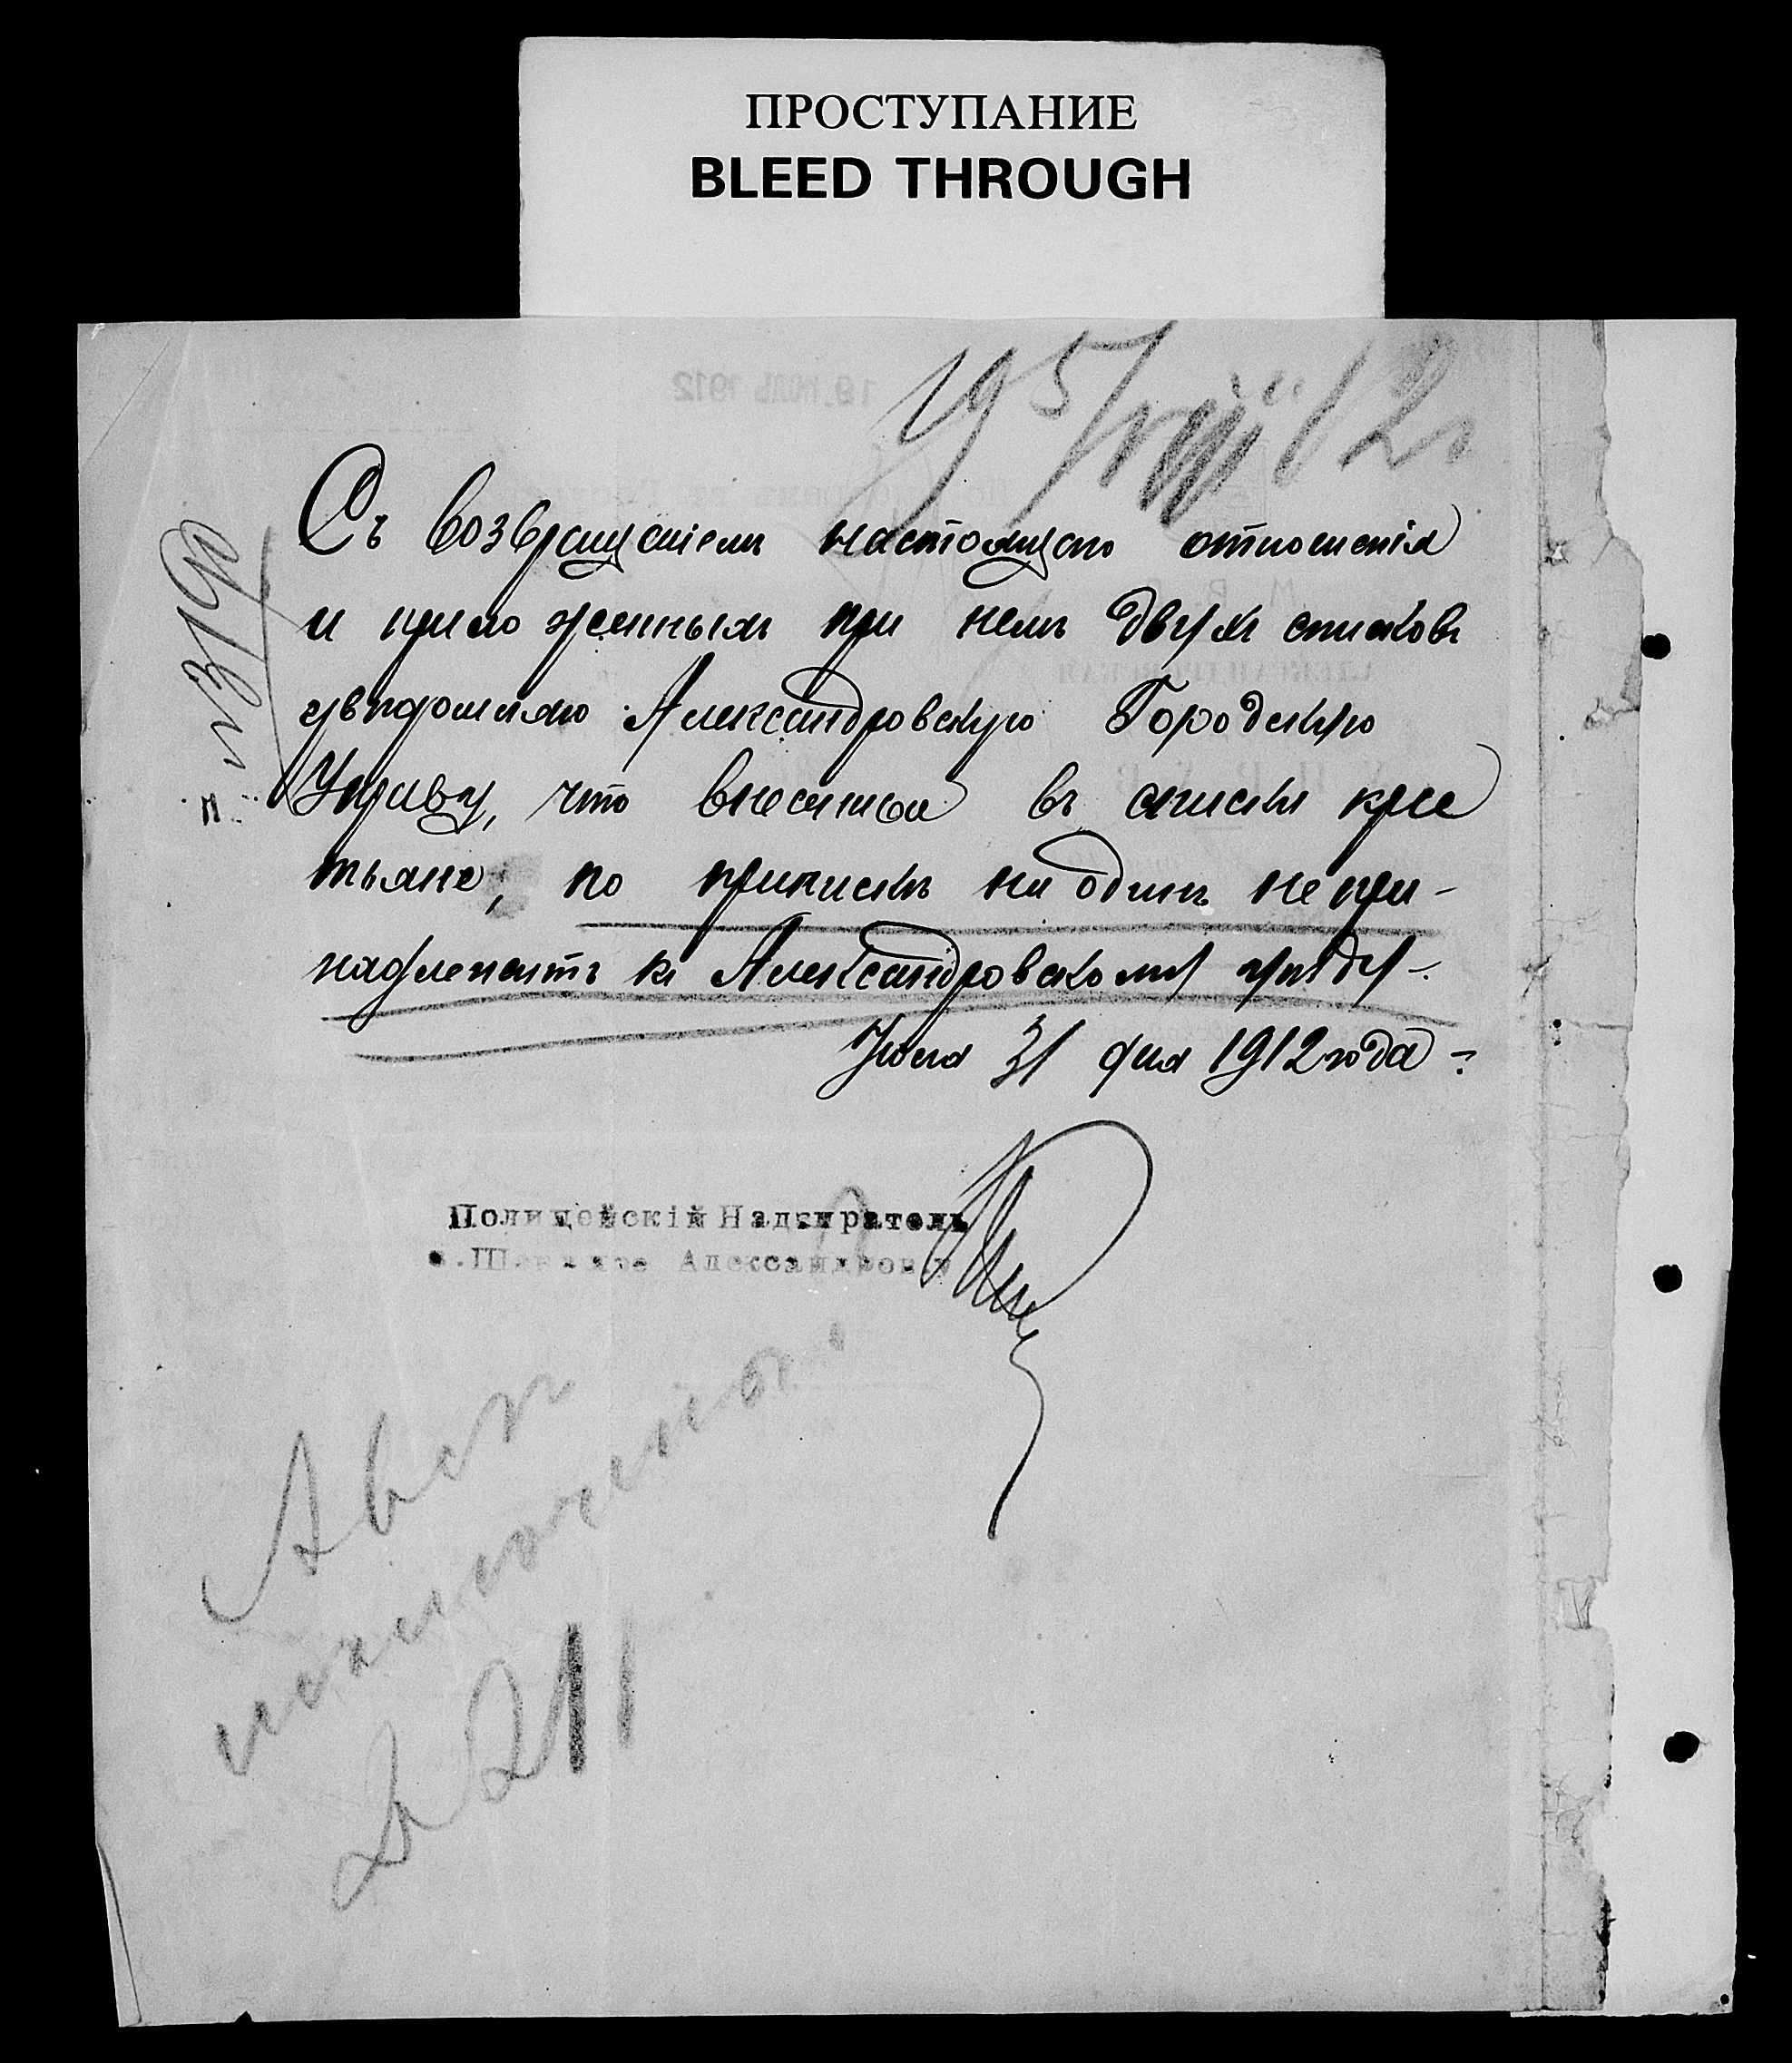 ПРОСТУПАНИЕ
BLEED THROUGH
19 5/VIII 12 г
№ 3190
Съ возвращеніемъ настоящаго отношенія
и приложеннымъ при немъ двухъ списковъ
увѣдомляю Александровскую Городскую
Управу, что внесенные въ списки крес
тьяне, по припискѣ ни одинъ не при-
надлежитъ къ Александровскому уѣзду.
Іюля 31 дня 1912 года
Полицейскій Надзиратель
Александров